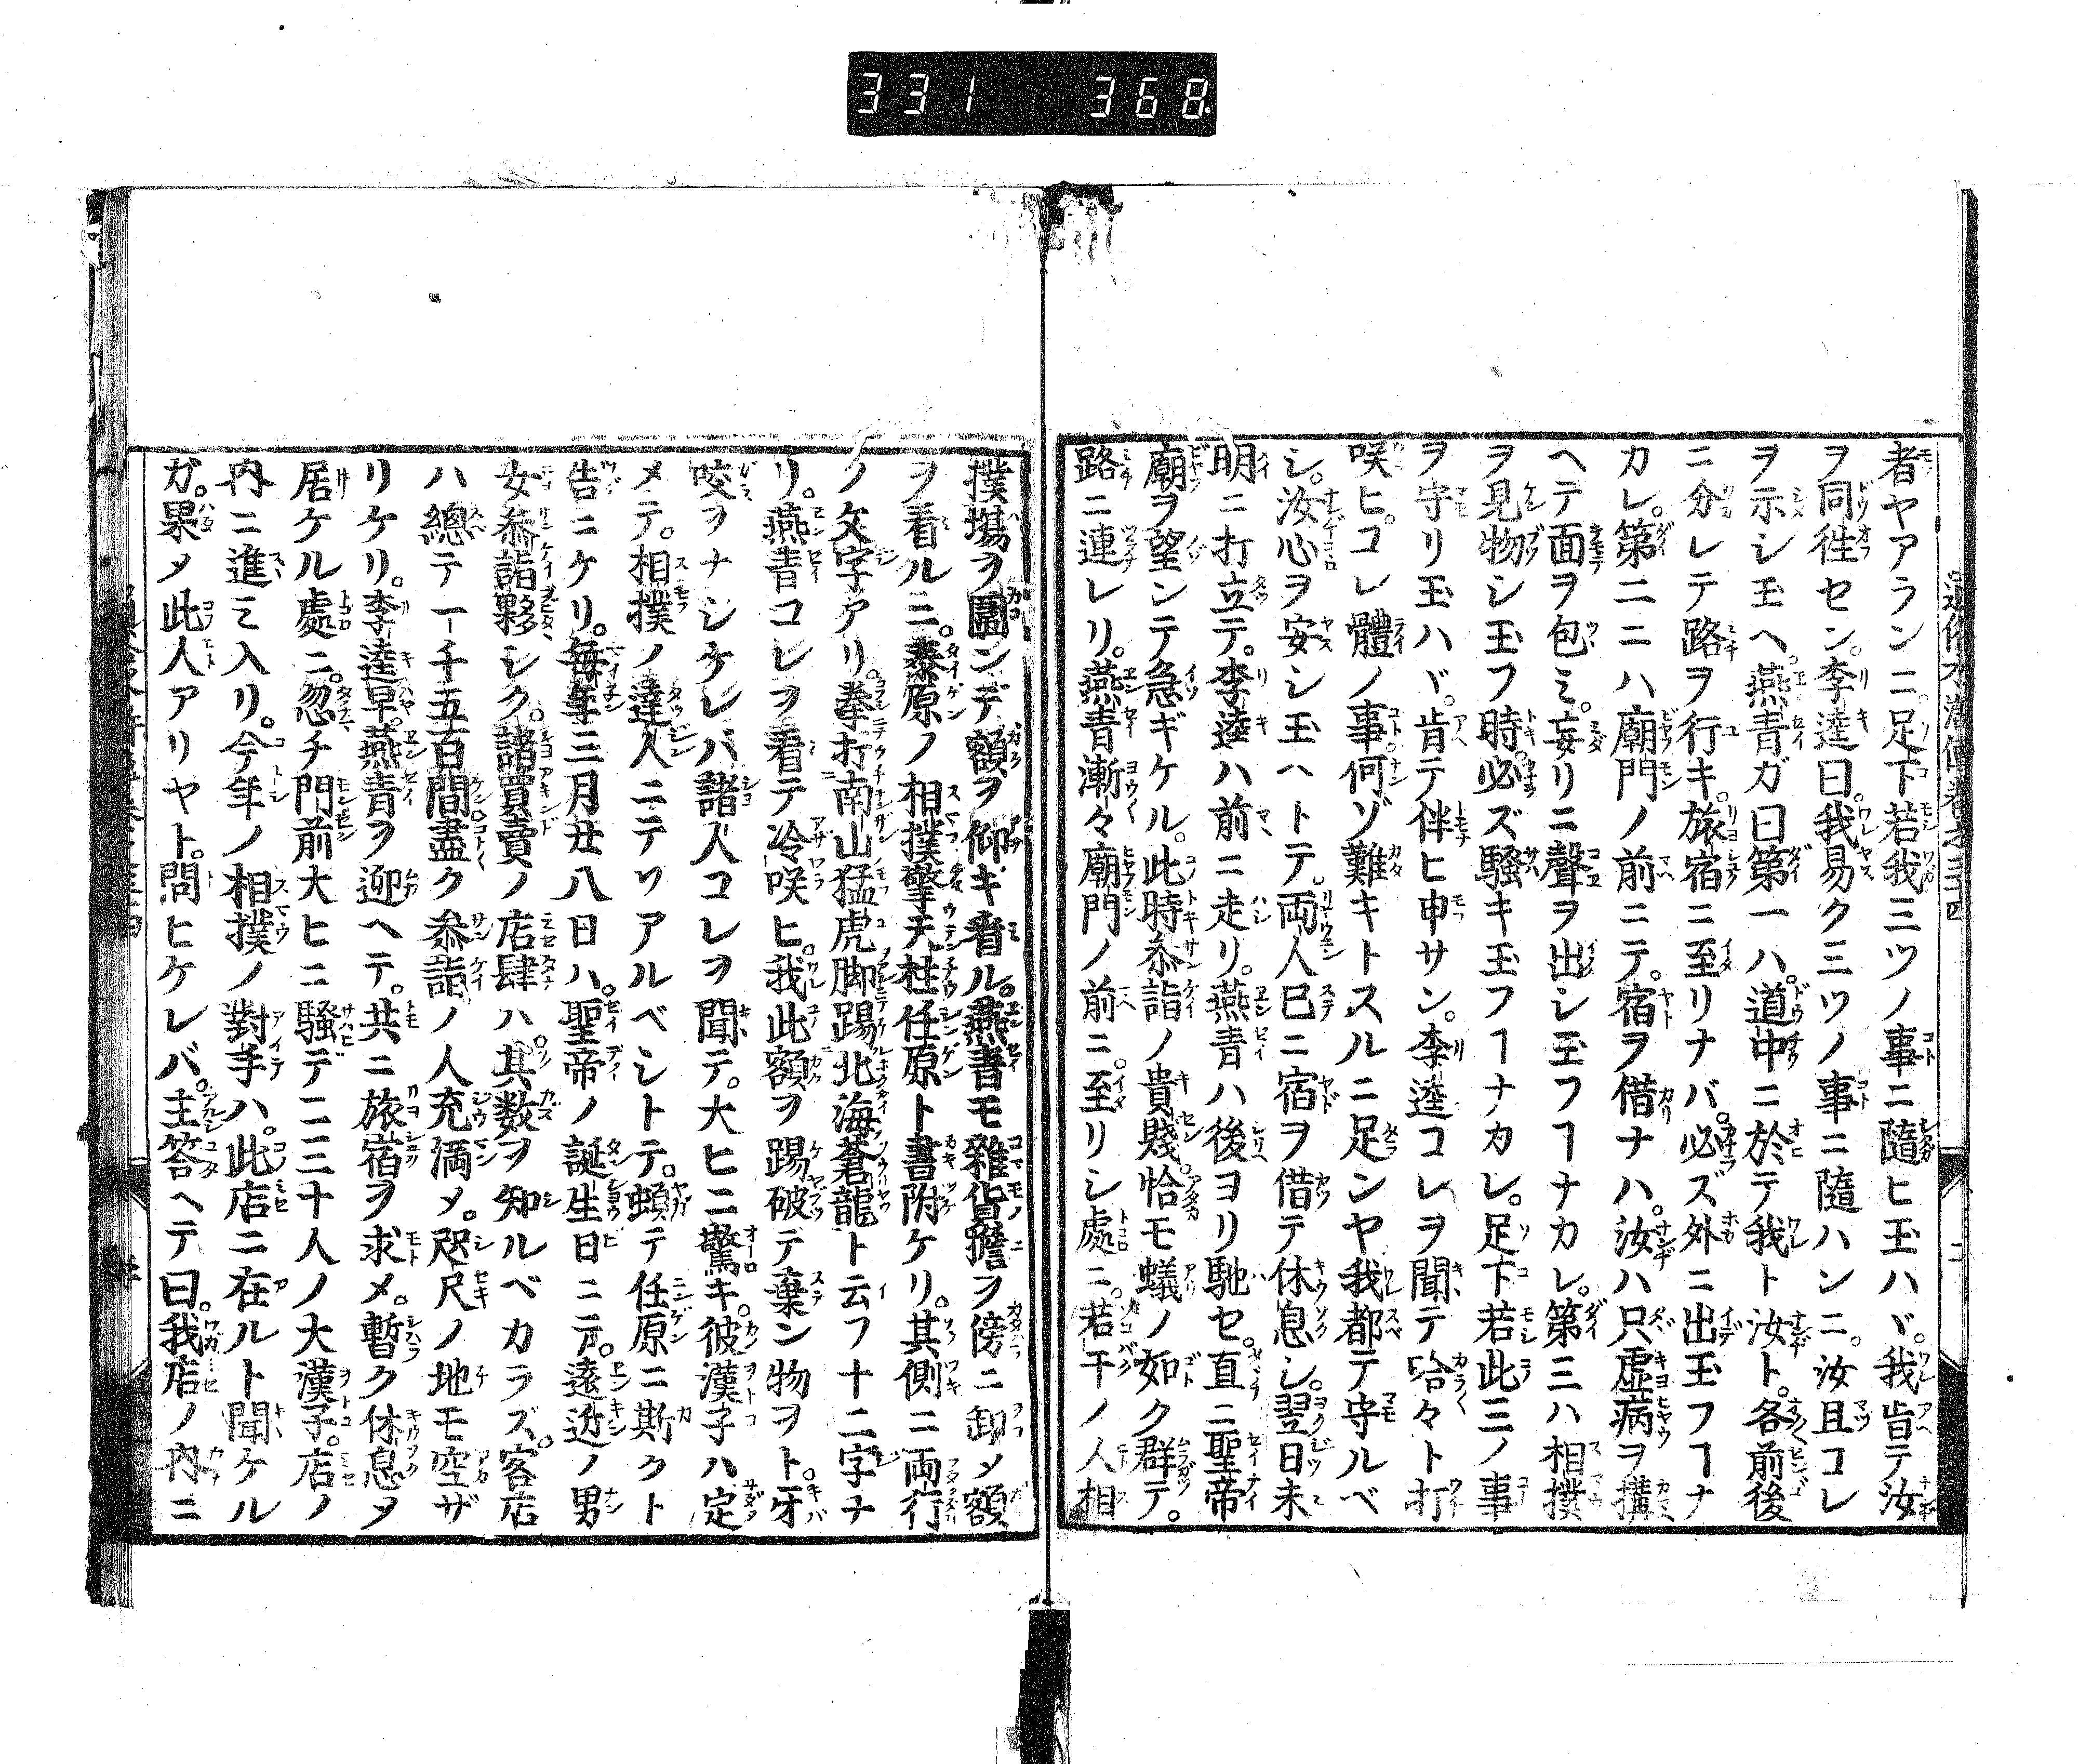 331 368
者ヤアランニ。足下若我三ツノ事ニ隨ヒ玉ハヾ。我肯テ汝
ヲ同徃セン。李逵曰。我易ク三ツノ事ニ隨ハンニ。汝且コレ
ヲ示シ玉ヘ。燕青ガ曰第一ハ。道中ニ於テ我ト汝ト。各前後
ニ分レテ路ヲ行キ。旅宿ニ至リナバ。必ズ外ニ出玉フヿナ
カレ。第二ニハ廟門ノ前ニテ。宿ヲ借ナハ。汝ハ只虚病ヲ搆
ヘテ面ヲ包ミ。妄リニ聲ヲ出シ玉フヿナカレ。第三ハ相撲
ヲ見物シ玉フ時。必ズ騒キ玉フヿナカレ。足下若此三ノ事
ヲ守リ玉ハヾ。肯テ伴ヒ申サン。李逵コレヲ聞テ哈々ト打
咲ヒ。コレ體ノ事何ゾ難キトスルニ足ンヤ我都テ守ルベ
シ。汝心ヲ安シ玉ハトテ。両人已ニ宿ヲ借テ休息シ。翌日未
明ニ打立テ。李逵ハ前ニ走リ。燕青ハ後ヨリ馳セ。直ニ聖帝
廟ヲ望ンテ急ギケル。此時叅詣ノ貴賤。恰モ蟻ノ如ク群テ。
路ニ連レリ。燕青漸々廟門ノ前ニ。至リシ處ニ。若干ノ人相
撲塲ヲ圍ンデ額ヲ仰ギ看ル。燕青モ雜貨擔ヲ傍ニ卸メ額
ヲ看ルニ。泰原ノ相撲擎天柱任原ト書附ケリ。其側ニ両行
ノ文字アリ。拳打南山猛虎脚踢北海蒼龍ト云フ十二字ナ
リ。燕青コレヲ看テ冷咲ヒ。我此額ヲ踢破テ棄ン物ヲト。牙
咬ヲナシケレバ諸人コレヲ聞テ。大ヒニ驚キ。彼漢子ハ定
メテ。相撲ノ達人ニテソアルベシトテ。頓テ任原ニ斯クト
告ニケリ。毎年三月廿八日ハ。聖帝ノ誕生日ニテ。遠近ノ男
女叅詣夥シク。諸買賣ノ店肆ハ。其数ヲ知ルベカラズ。客店
ハ總テ一千五百間盡ク叅詣ノ人充満メ。咫尺ノ地モ空ザ
リケリ。李逵早。燕青ヲ迎ヘテ。共ニ旅宿ヲ求メ。暫ク休息ヲ
居ケル處ニ。忽チ門前大ヒニ騒デ二三十人ノ大漢子。店ノ
内ニ進ミ入リ。今年ノ相撲ノ對手ハ。此店ニ在ルト聞ケル
ガ。果メ此人アリヤト。問ヒケレバ。主答ヘテ曰。我店ノ内ニ